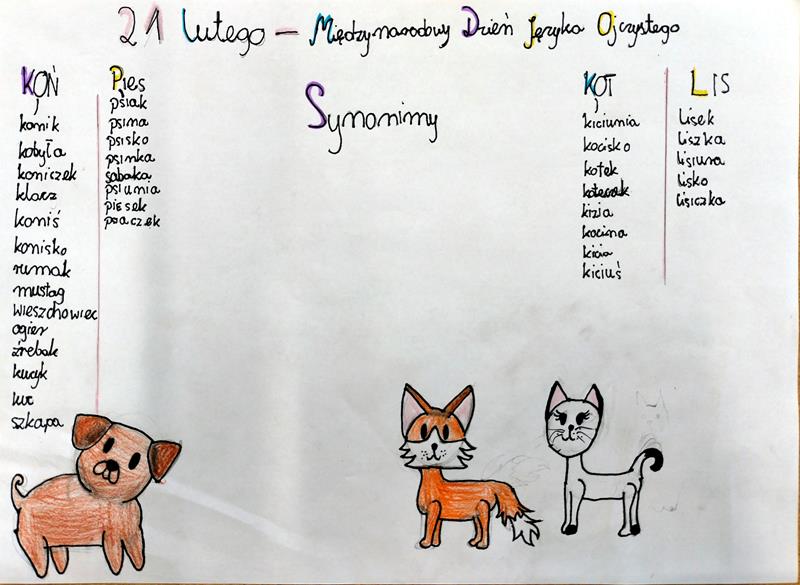 21 lutego – Międzynarodowy Dzień Języka Ojczystego
Synonimy
KOŃ
konik
kobyła
koniczek
klacz
koniś
konisko
rumak
mustag
wieszchowiec
ogier
źrebak
kucyk
kuc
szkapa
Pies
psiak
psina
psisko
psinka
sabaka
psiunia
piesek
psiaczek
KOT
kiciunia
kocisko
kotek
koteczek
kizia
kocina
kicia
kiciuś
LIS
lisek
liszka
lisiura
lisko
lisiczka